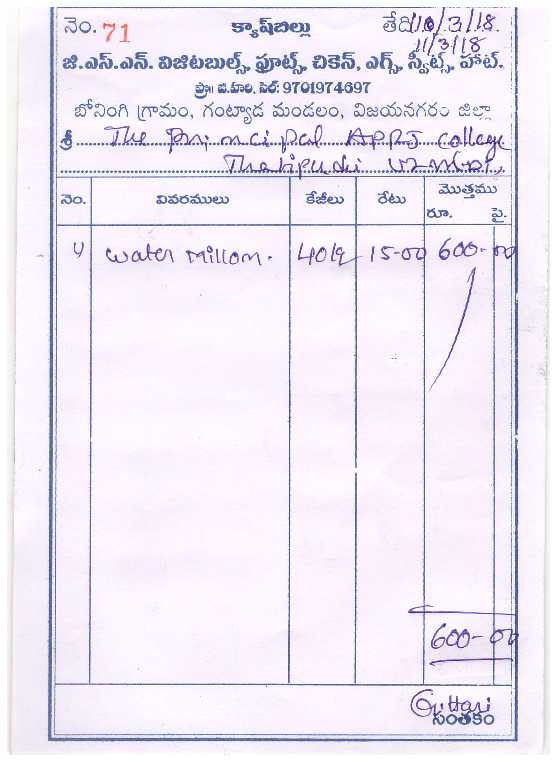 నెం. 71 క్యాష్‌బిల్లు తేది 10/3/18.
11/3/18
జి.ఎస్.ఎన్. విజిటబుల్స్, ఫ్రూట్స్, చికెన్, ఎగ్స్, స్వీట్స్, హాట్.
ప్రొః ఐ.హరి, సెల్: 9701974697
బోనంగి గ్రామం, గంట్యాడ మండలం, విజయనగరం జిల్లా
శ్రీ The Principal APRJ College
Thatipudi
నెం. వివరములు కేజీలు రేటు మొత్తము
రూ. పై.
water millon. 40 15-00 600-00
600-00
సంతకం